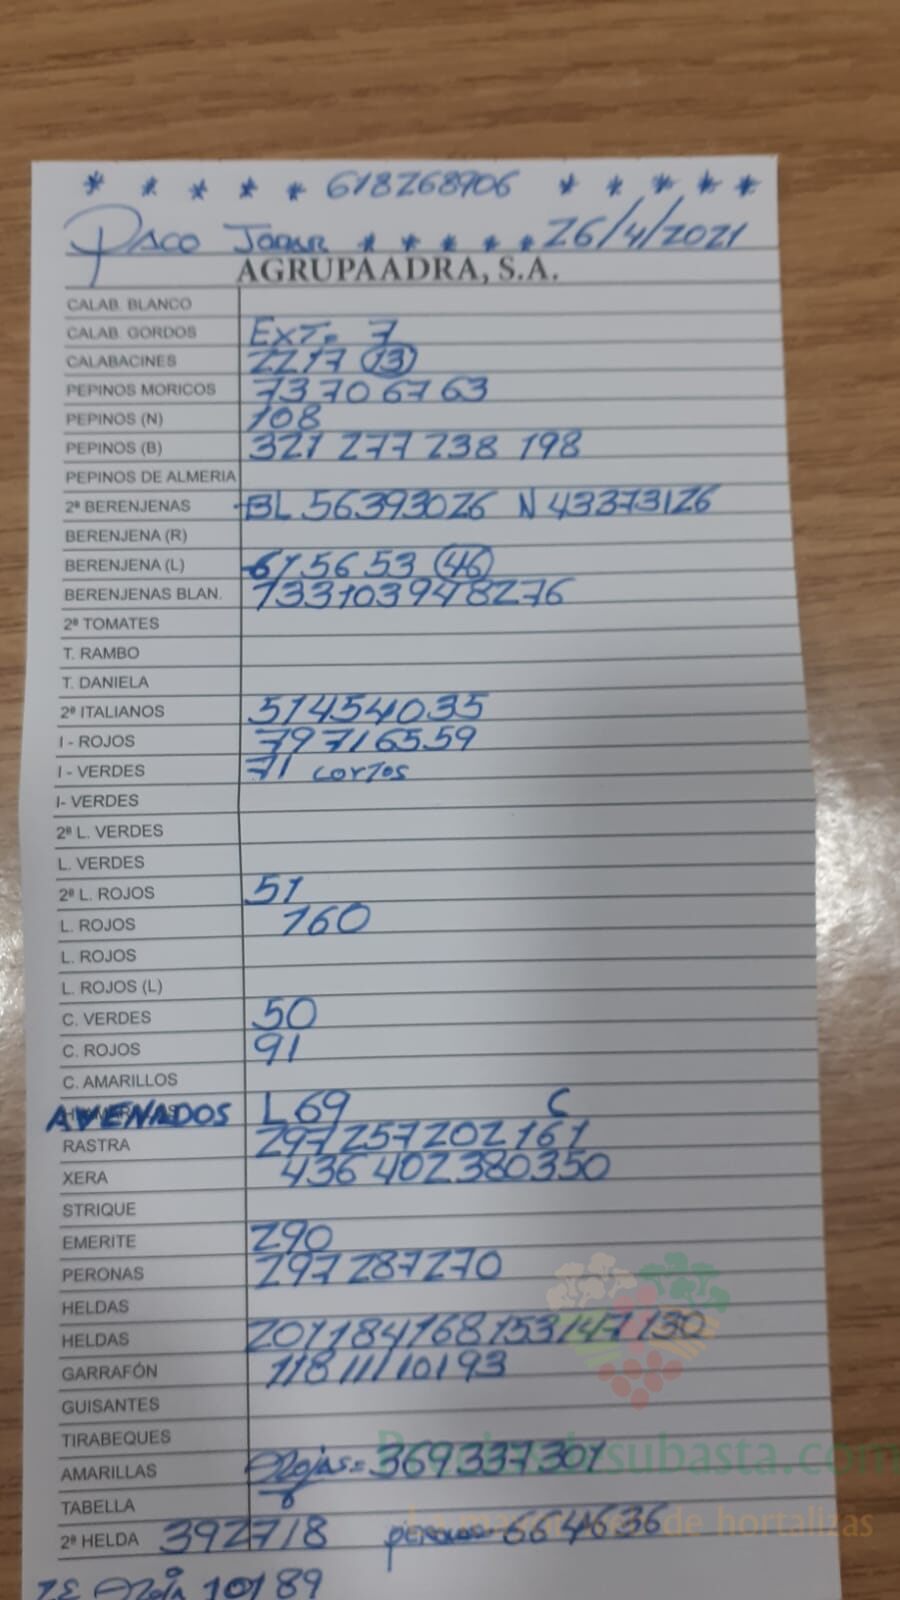 * * * * * 618268906 * * * * *
PACO JODAR * * * * * 26/4/2021
AGRUPAADRA, S.A.
CALAB. BLANCO
CALAB. GORDOS EXT= 7
CALABACINES 22 17 13
PEPINOS MORICOS 73 70 67 63
PEPINOS (N) 108
PEPINOS (B) 321 277 238 198
PEPINOS DE ALMERIA
2ª BERENJENAS BL 56 39 30 26 N 43 37 31 26
BERENJENA (R)
BERENJENA (L) 61 56 53 46
BERENJENAS BLAN. 133 103 94 82 76
2ª TOMATES
T. RAMBO
T. DANIELA
2ª ITALIANOS 51 45 40 35
I - ROJOS 79 71 65 59
I - VERDES 71 cortos
I- VERDES
2ª L. VERDES
L. VERDES
2ª L. ROJOS 51
L. ROJOS 160
L. ROJOS
L. ROJOS (L)
C. VERDES 50
C. ROJOS 91
C. AMARILLOS
AVENADOS L 69 C
RASTRA 297 257 202 161
XERA 436 402 380 350
STRIQUE
EMERITE 290
PERONAS 297 287 270
HELDAS
HELDAS 201 184 168 153 147 130
GARRAFÓN 118 111 101 93
GUISANTES
TIRABEQUES
AMARILLAS Rojas= 369 337 301
TABELLA
2ª HELDA 39 27 18 66 46 36
101 89
subasta.com
La mayor web de hortalizas